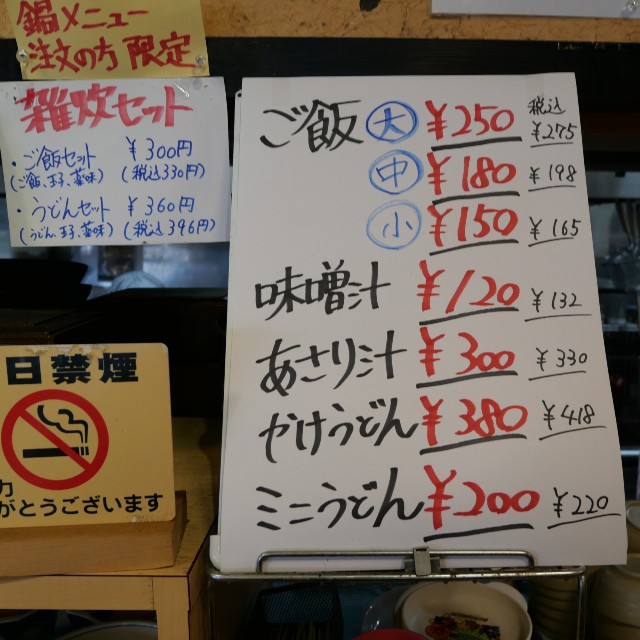 鍋メニュー
注文の方 限定
雑炊セット
・ご飯セット ￥300円
(ご飯、玉子、薬味) (税込330円)
・うどんセット ￥360円
(うどん、玉子、薬味) (税込396円)
日禁煙
がとうございます
ご飯 大 ￥250 税込 ￥275
中 ￥180 ￥198
小 ￥150 ￥165
味噌汁 ￥120 ￥132
あさり汁 ￥300 ￥330
やけうどん ￥380 ￥418
ミニうどん ￥200 ￥220